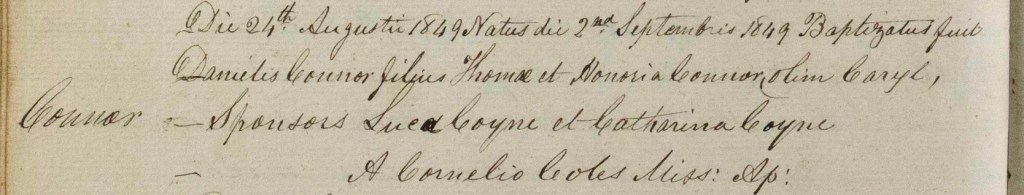 Die 24th Augustii 1849 Natus die 2nd Septembris 1849 Baptizatus fuit
Danielis Connor filius Thomæ et Honoria Connor, olim Caryl,
Connor — Sponsors Luca Coyne et Catharina Coyne
— A Cornelio Coles Miss: Ap: